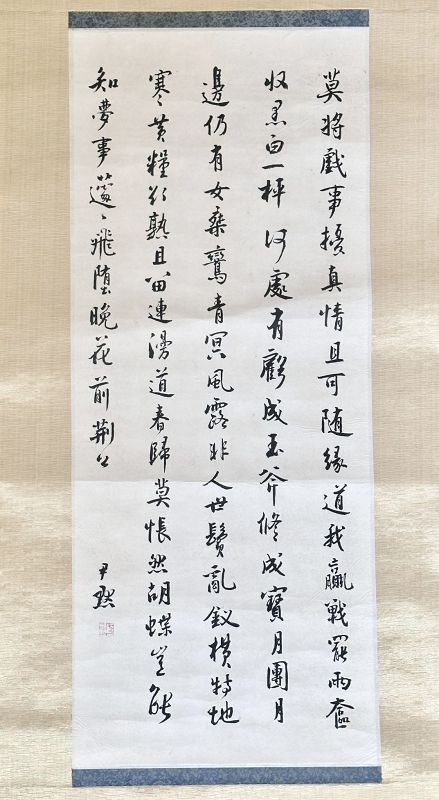 莫將戲事擾真情且可随緣道我贏戰罷兩奩
収黑白一枰何處有虧成玉斧修成寶月團月
邊仍有女乘鸞青冥風露非人世鬢亂釵橫特地
寒黃糧欲熟且留連漫道春歸莫悵然胡蝶豈能
知夢事蘧々飛墮晚花前荊公
尹默